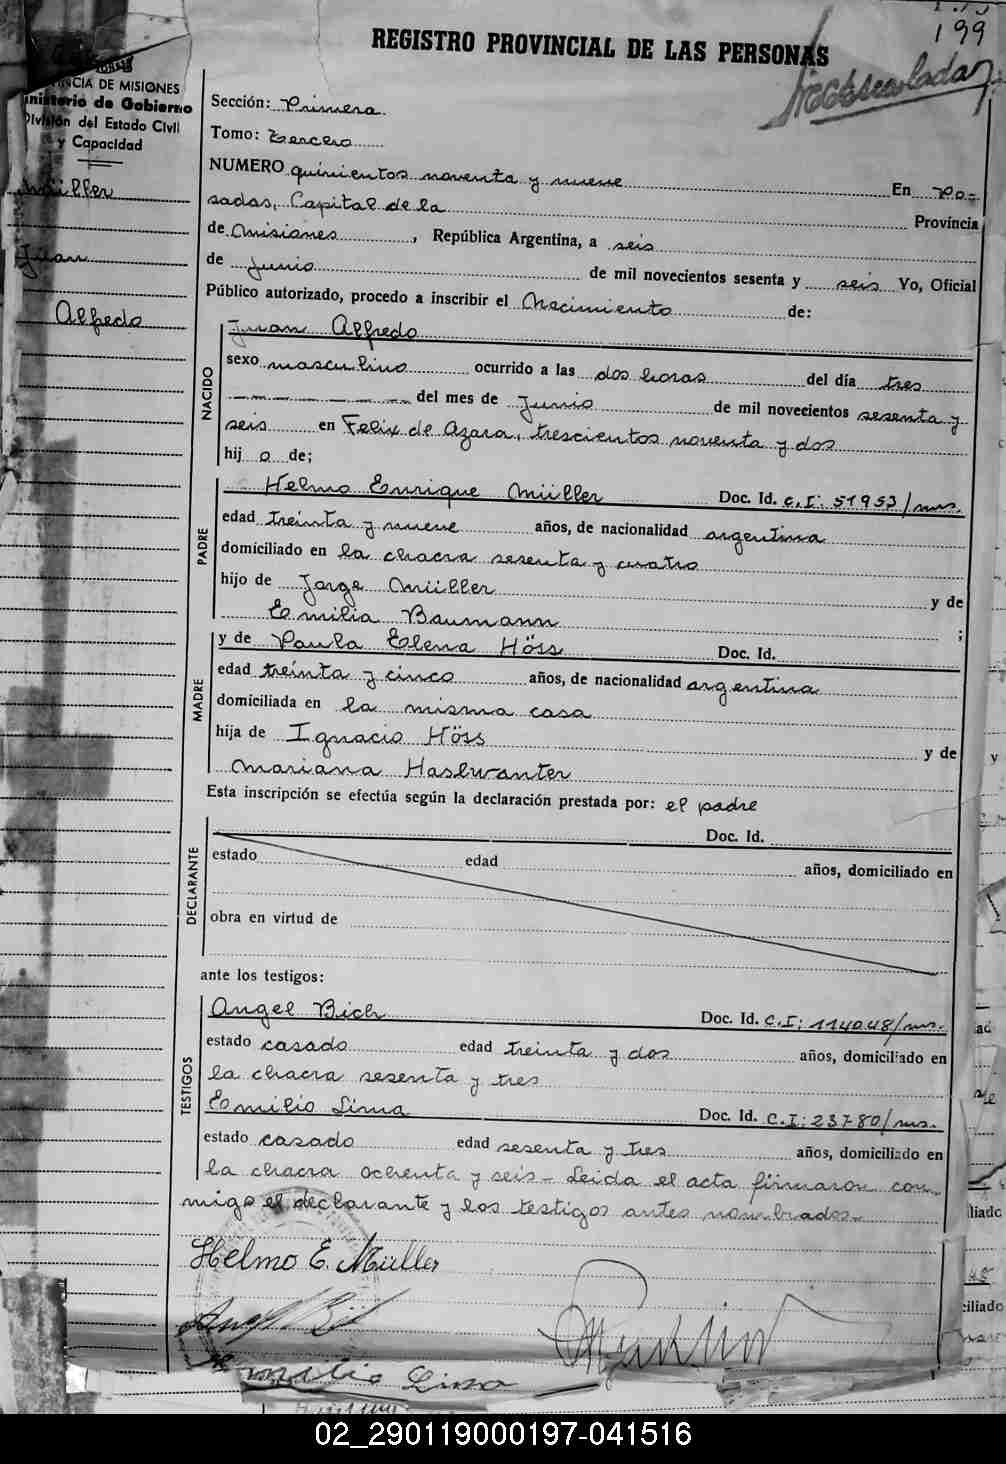 199
REGISTRO PROVINCIAL DE LAS PERSONAS
PROVINCIA DE MISIONES
Ministerio de Gobierno
División del Estado Civil
y Capacidad
Müller
Juan
Alfredo
Sección: Primera
Tomo: Tercero
NUMERO quinientos noventa y nueve En Po-
sadas, Capital de la Provincia
de Misiones, República Argentina, a seis
de Junio de mil novecientos sesenta y seis Yo, Oficial
Público autorizado, procedo a inscribir el Nacimiento de:
NACIDO
Juan Alfredo
sexo masculino ocurrido a las dos horas del día tres
del mes de Junio de mil novecientos sesenta y
seis en Felix de Azara, trescientos noventa y dos
hij o de;
PADRE
Helmo Enrique Müller Doc. Id. C.I: 51953/ms.
edad treinta y nueve años, de nacionalidad argentina
domiciliado en la chacra sesenta y cuatro
hijo de Jorge Müller y de
Emilia Baumann ;
MADRE
y de Paula Elena Höss Doc. Id.
edad treinta y cinco años, de nacionalidad argentina
domiciliada en la misma casa
hija de Ignacio Höss y de
Mariana Haslwanter
Esta inscripción se efectúa según la declaración prestada por: el padre
DECLARANTE
Doc. Id.
estado edad años, domiciliado en
obra en virtud de
ante los testigos:
TESTIGOS
Angel Bich Doc. Id. C.I: 114048/ms.
estado casado edad treinta y dos años, domiciliado en
la chacra sesenta y tres
Emilio Lima Doc. Id. C.I: 23780/ms.
estado casado edad sesenta y tres años, domiciliado en
la chacra ochenta y seis_ Leida el acta firmaron con-
migo el declarante y los testigos antes nombrados_
Helmo E. Müller
Emilio Lima
02_290119000197-041516